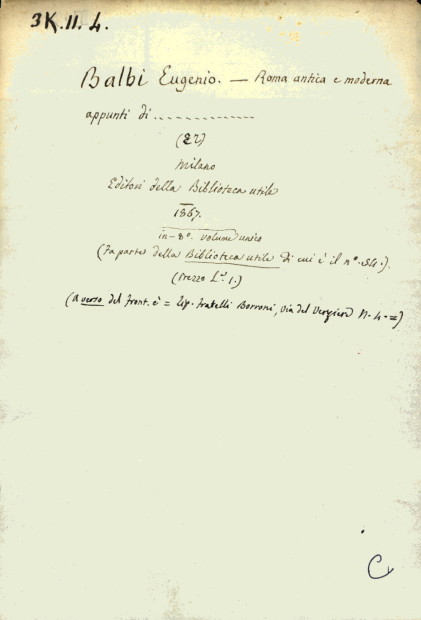 3K.II.4.
Balbi Eugenio. — Roma antica e moderna
appunti di ..............
(ER)
Milano
Editori della Biblioteca utile
1867.
in-8º. volume unico
(Fa parte della Biblioteca utile di cui è il nº. 54.).
(Prezzo L. 1.)
(A verso del front. è = Tip. fratelli Borroni, via del Verziere N. 4. =)
C